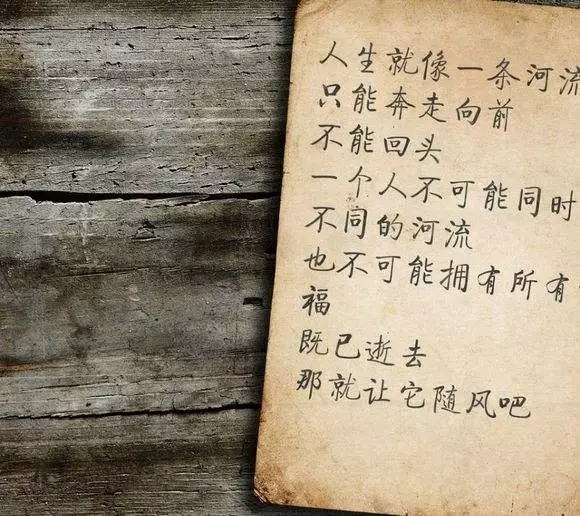 人生就像一条河流
只能奔走向前
不能回头
一个人不可能同时
不同的河流
也不可能拥有所有
福
既已逝去
那就让它随风吧